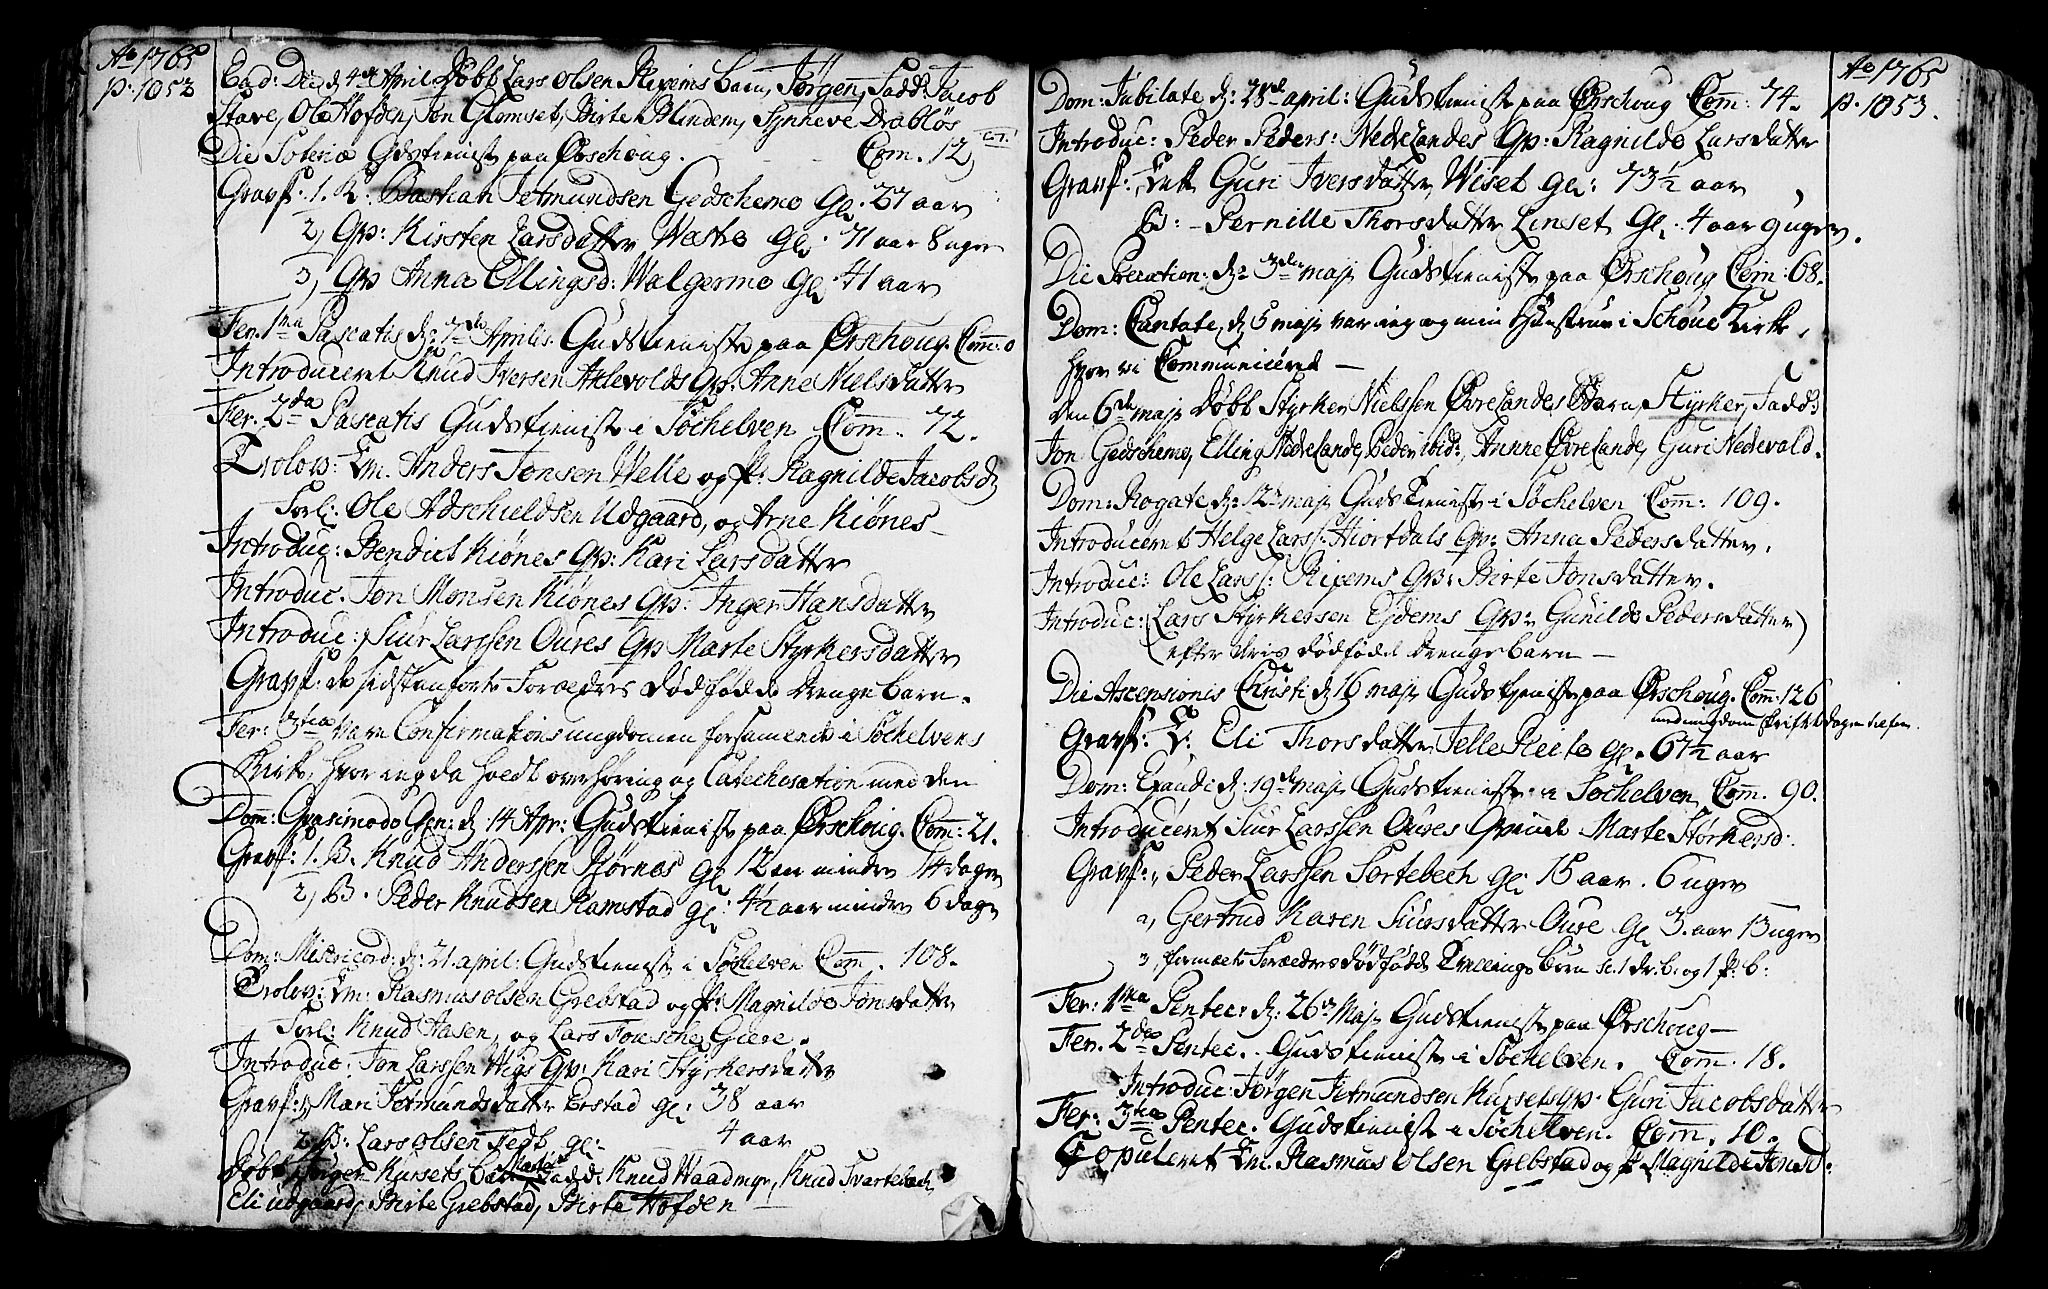 Ao 1765
p. 1052
Ead: Die d 4de April Døbt Lars Olsen Rexems barn, Jørgen, Fadd: Jacob
Stave, Ole Hofden, Jon Glomset, Birte Blindem, Synneve Drabløs
Die Soteriæ Gudstienist paa Ørschoug. Com. 12
Gravf. 1. K: Bastian Jetmundsen Gedschemo Gl. 27 aar
2, Qv: Kirsten Larsdatter Westre Gl: 71 aar 8 uger
3, Qv Anna Ellingsd: Walgermo Gl 41 aar
Fer. 1ma Pascatis d: 7de Aprilis. Gudstieniste paa Ørschoug. Com: 0
Introduceret Knud Iversen Aklevolds Qv: Anne Nielsdatter
Fer. 2da Pascatis Gudstienist i Søchelven Com. 72.
Trolov: Em. Anders Jonsen Welle og P: Ragnilde Jacobsd
Forl: Ole Adschieldsen Udgaard, og Arne Kiønes
Introduc: Bendict Kiønes Qv: Kari Larsdatter
Introduc. Jon Monsen Kiønes Qv: Inger Hansdatter
Introduc: Siur Larssen Oures Qv Marte Styrkersdatter
Gravf: de sidstanførte Forældres dødfødde drenge barn.
Fer: 3tia var Confirmations ungdomen forsamlede i Søchelvens
Kirke, hvor ieg da holdt overhøring og Catechesation med den
Dom: Qvasimodo Gen: d 14 Apr: Gudstienist paa Ørschoug. Com: 21.
Gravf: 1. B. Knud Anderssen Biørnøs gl 12 aar mindre 14 dager
2, B. Peder Knudsen Ramstad gl: 4½ aar mindre 6 dage
Dom: Misericord: d: 21 april: Gudstienist i Søchelven Com. 108.
Trolov: Em: Rasmus Olsen Grebstad og P: Magnilde Jonsdatter
Forl: Knud Aasen, og Lars Giere.
Introduc: Jon Larssen Wigs Qv: Kari Styrkersdatter
Gravf: 1, Mari Jetmundsdatter Ørstad gl: 38 aar
2, B: Lars Olsen gl: 4 aar
Døbt Jørgen Kursets barn Marte Fadd: Knud Waadmyr, Knud Svartebech
Eli Udgaard, Birte Grebstad, Birte Hofden
Ao 1765
p. 1053.
Dom: Jubilate d: 28de april: Gudstienist paa Ørschoug Com: 74.
Introduc: Peder Peders: Nedrelandes Qv: Ragnilde Larsdatter
Gravf: Guri Iversdatter Wiset gl: 73½ aar
B: Pernille Thorsdatter Linset Gl. 4 aar 9 uger.
Die Precation: d: 3de maji Gudstieniste paa Ørschoug Com: 68.
Dom: Cantate, d 5 maji var ieg og min Hustrue i Schoue Kirke,
hvor vi Communicered
Den 6de maji Døbt Styrker Nielssen Øvrelandes Barn, Styrker, Fadd:
Jon Gedschemo, Elling Nedrelande, Peder ibid:, Annne Øvrelande, Guri Nedevald.
Dom: Rogate d: 12te maji Gudstienist i Søchelven Com: 109.
Introduceret Helge Larss: Hiortdals Qv: Anna Pedersdatter.
Introduc: Ole Larss: Rexems Qv: Birte Jonsdatter.
Introduc: (Lars Styrkersen Eidems Qv: Gunilde Pedersdatter)
(efter dris dødfødde drenge barn
Die Ascensionis Christi d 16 maji Gudstienist paa Ørschoug. Com: 126
Gravf: Eli Thorsdatter Jelle Reite gl. 67½ aar
Dom: Exaudi d: 19de maji Gudstienist i Søchelven Com. 90.
Introduceret Siur Larssen Oures Qvinde Marte Størkersd:
Gravf: 1, Peder Larssen Sortebech Gl: 15 aar. 6 uger
2, Gertrud Karen Siursdatter Oure gl 3. aar 13 uger
3, Forældres dødfødde Tvillinge børn sc. 1 dr: b: og 1 P: b:
Fer: 1ma Pentec: d: 26de Maji Gudstienist paa Ørschoug
Fer. 2da Pentec. Gudstienist i Søchelven. Com. 18.
Introduc: Jørgen Jetmundsen Kursets Qv. Guri Jacobsdatter
Fer: 3tia Pentec. Gudstienist i Søchelven. Com. 10.
Copuleret Em. Rasmus Olsen Grebstad og P Magnilde Jonsd: